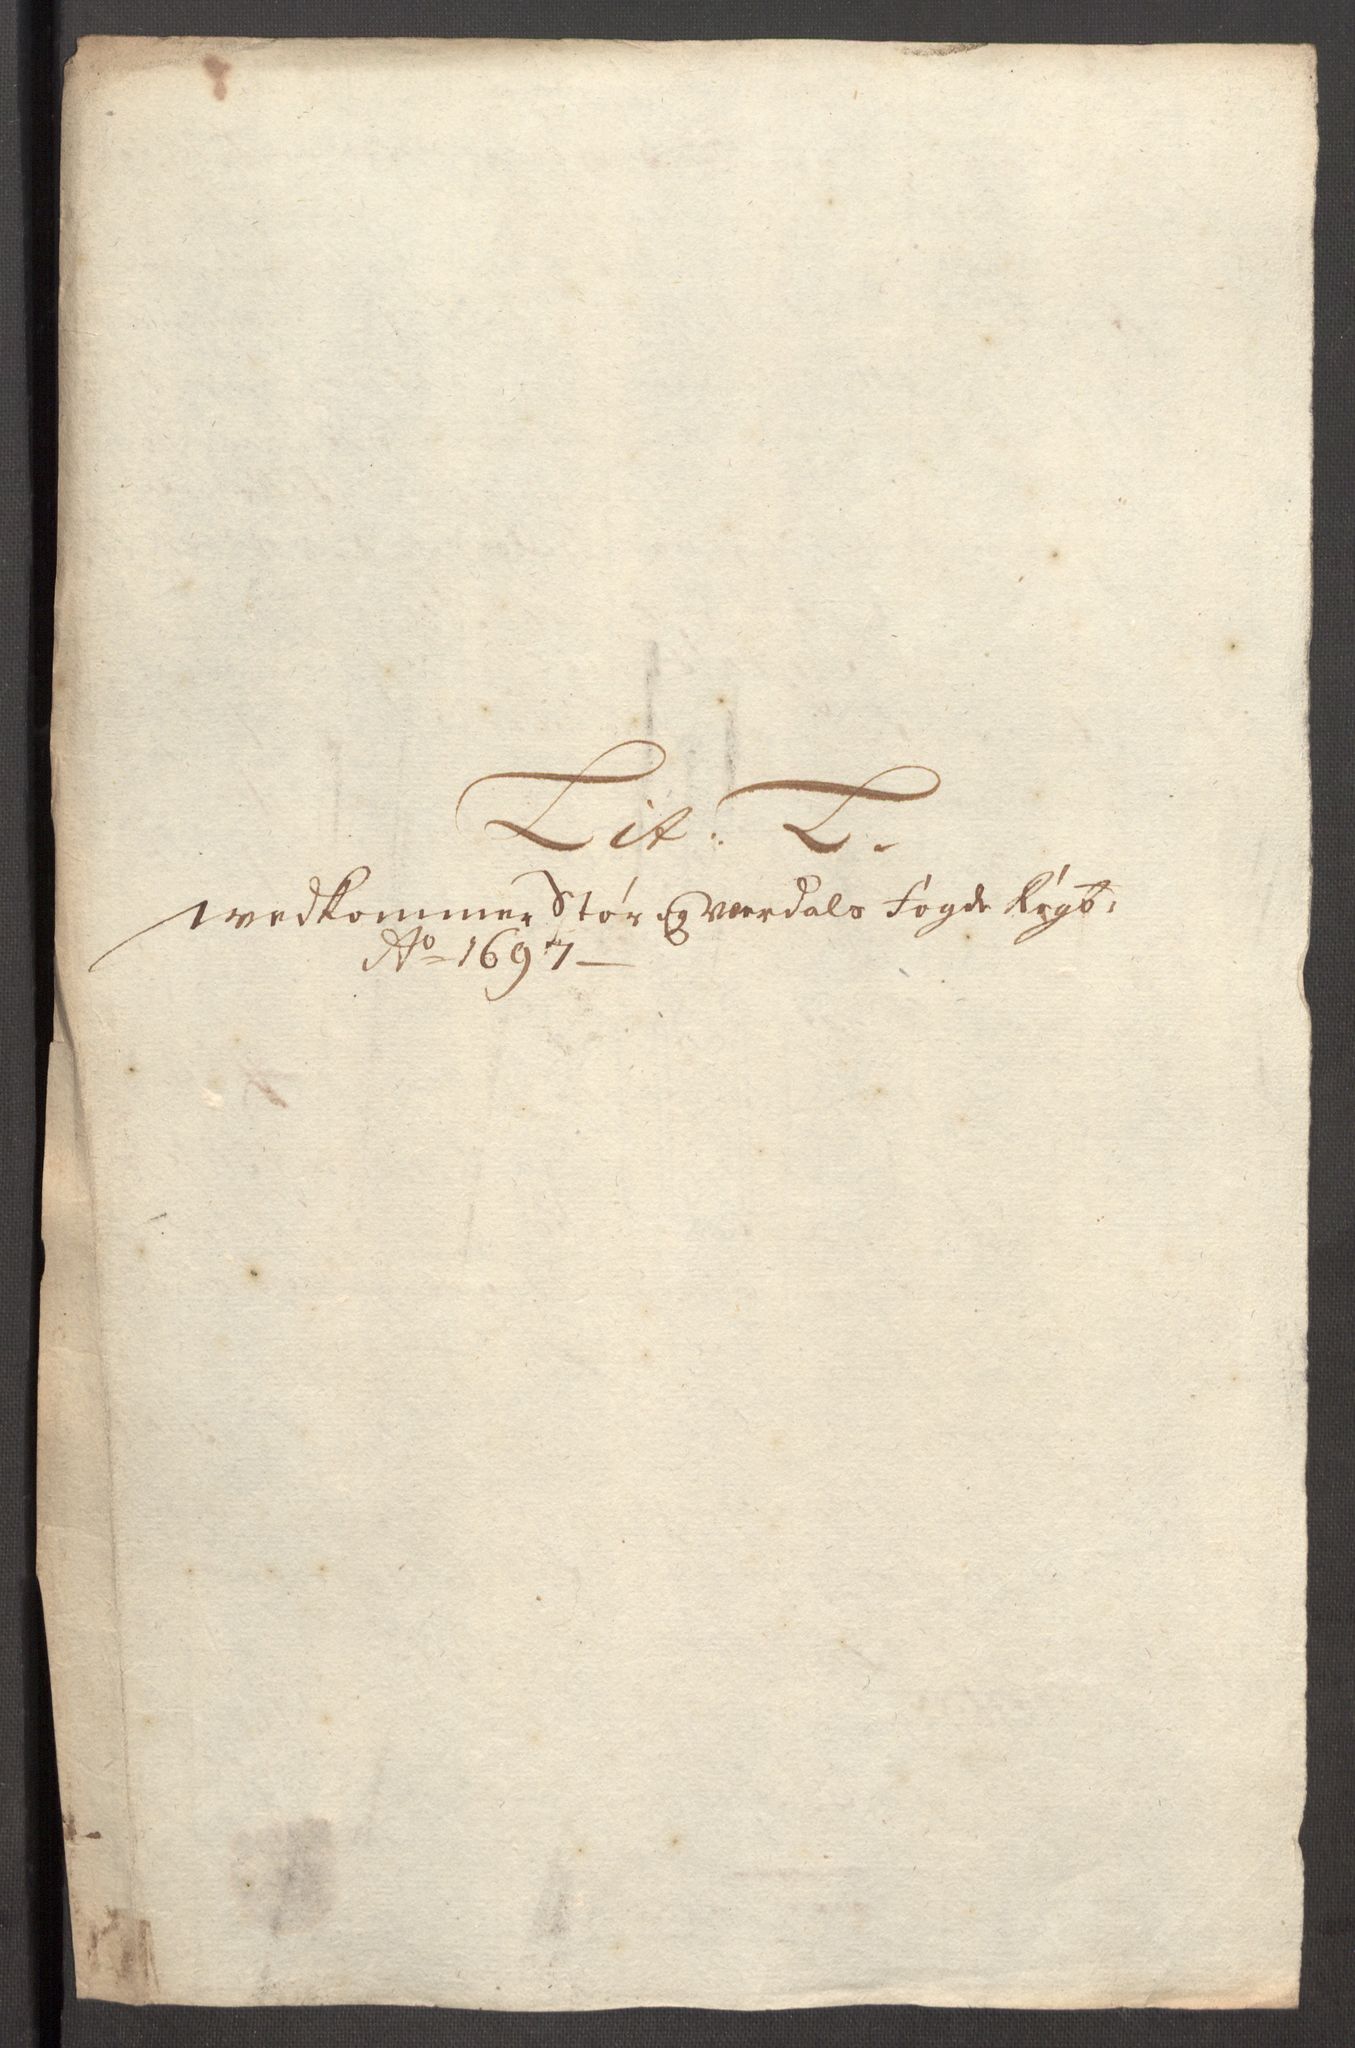 Lit: T.
wedkommer Stør og Værdals Fogde Regb:
Ao 1697